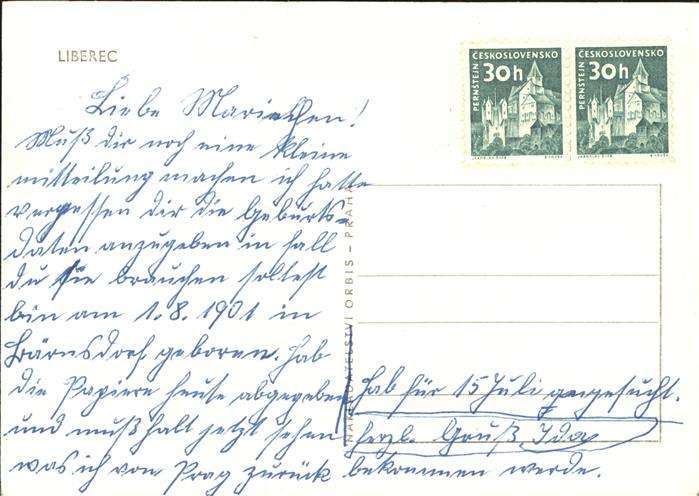 LIBEREC
ČESKOSLOVENSKO
30h
PERNŠTEJN
ČESKOSLOVENSKO
30h
PERNŠTEJN
Liebe Mariechen!
Muß dir noch eine kleine
mitteilung machen ich hatte
vergessen dir die Geburts-
daten anzugeben in fall
du sie brauchen solltest
bin am 1.8.1901 in
Bärnsdorf geboren. Hab
die Papiere heute abgegeben
und muß halt jetzt sehen
was ich von Prag zurück bekommen werde.
hab für 15 Juli angesucht.
herzl. Gruß, Ida
NAKLADATELSTVÍ ORBIS - PRAHA